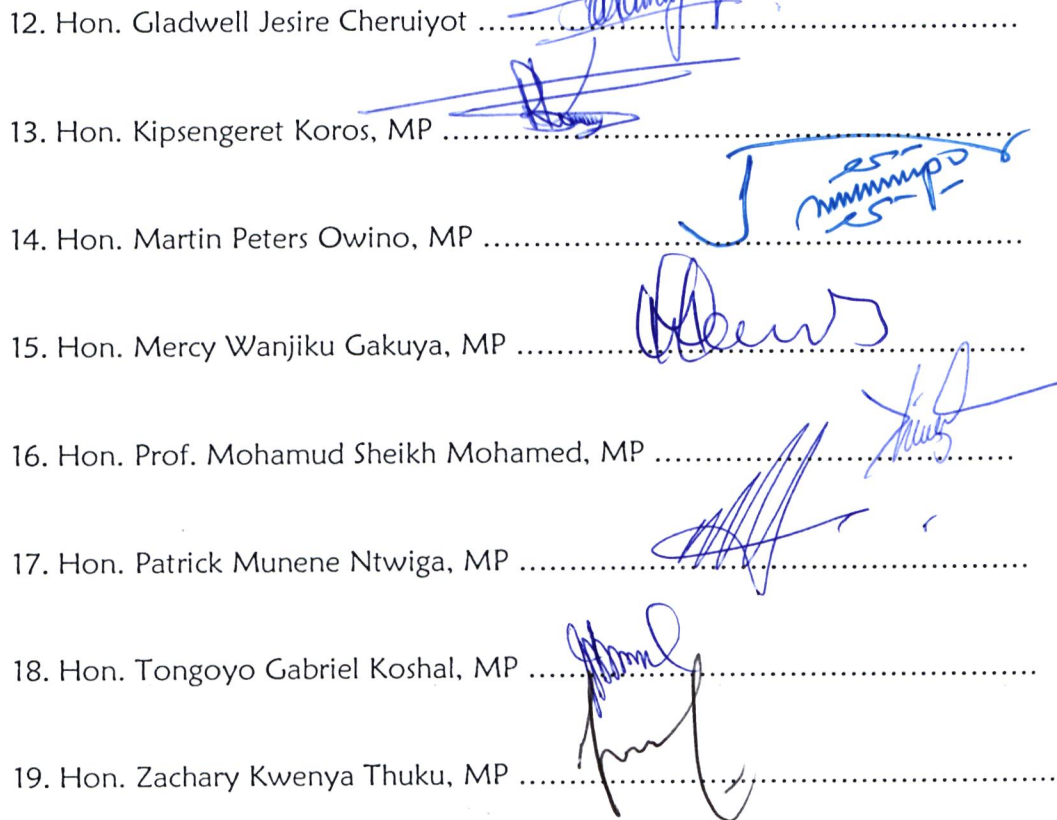 12. Hon. Gladwell Jesire Cheruiyot ..........................................................
13. Hon. Kipsengeret Koros, MP ..............................................................
14. Hon. Martin Peters Owino, MP ..........................................................
15. Hon. Mercy Wanjiku Gakuya, MP ......................................................
16. Hon. Prof. Mohamud Sheikh Mohamed, MP .......................................
17. Hon. Patrick Munene Ntwiga, MP ......................................................
18. Hon. Tongoyo Gabriel Koshal, MP ......................................................
19. Hon. Zachary Kwenya Thuku, MP .........................................................